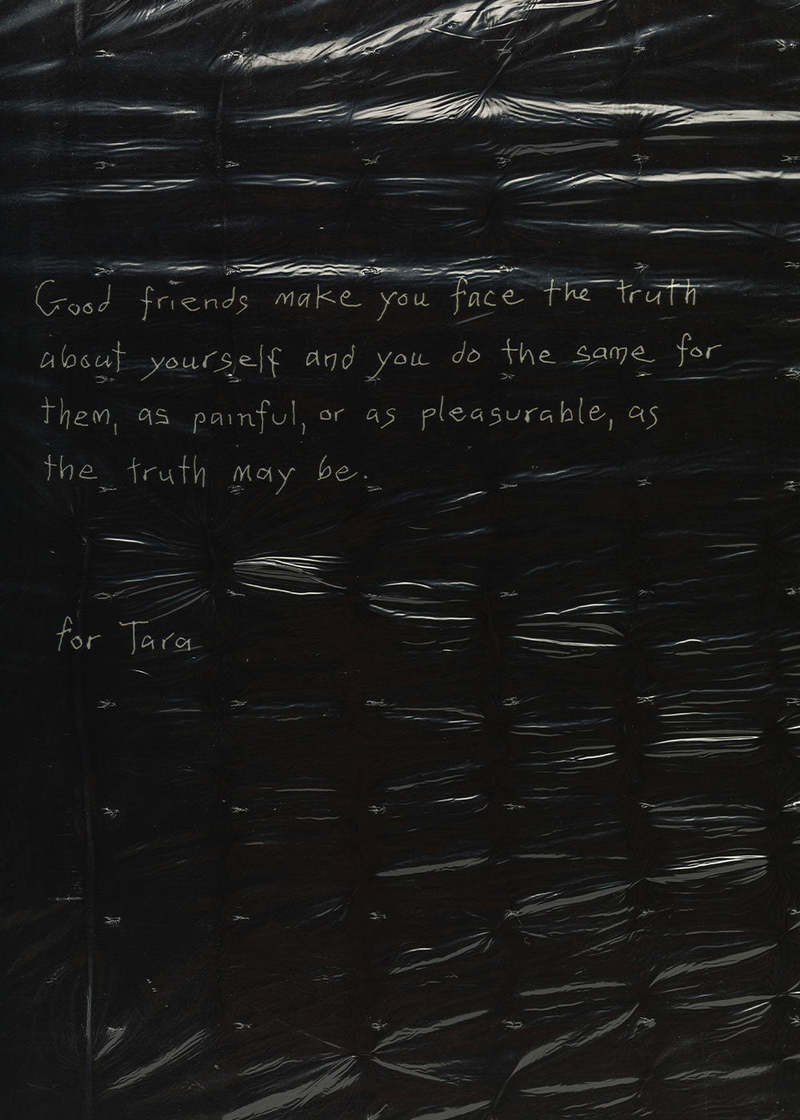 Good friends make you face the truth
about yourself and you do the same for
them, as painful, or as pleasurable, as
the truth may be.
for Tara